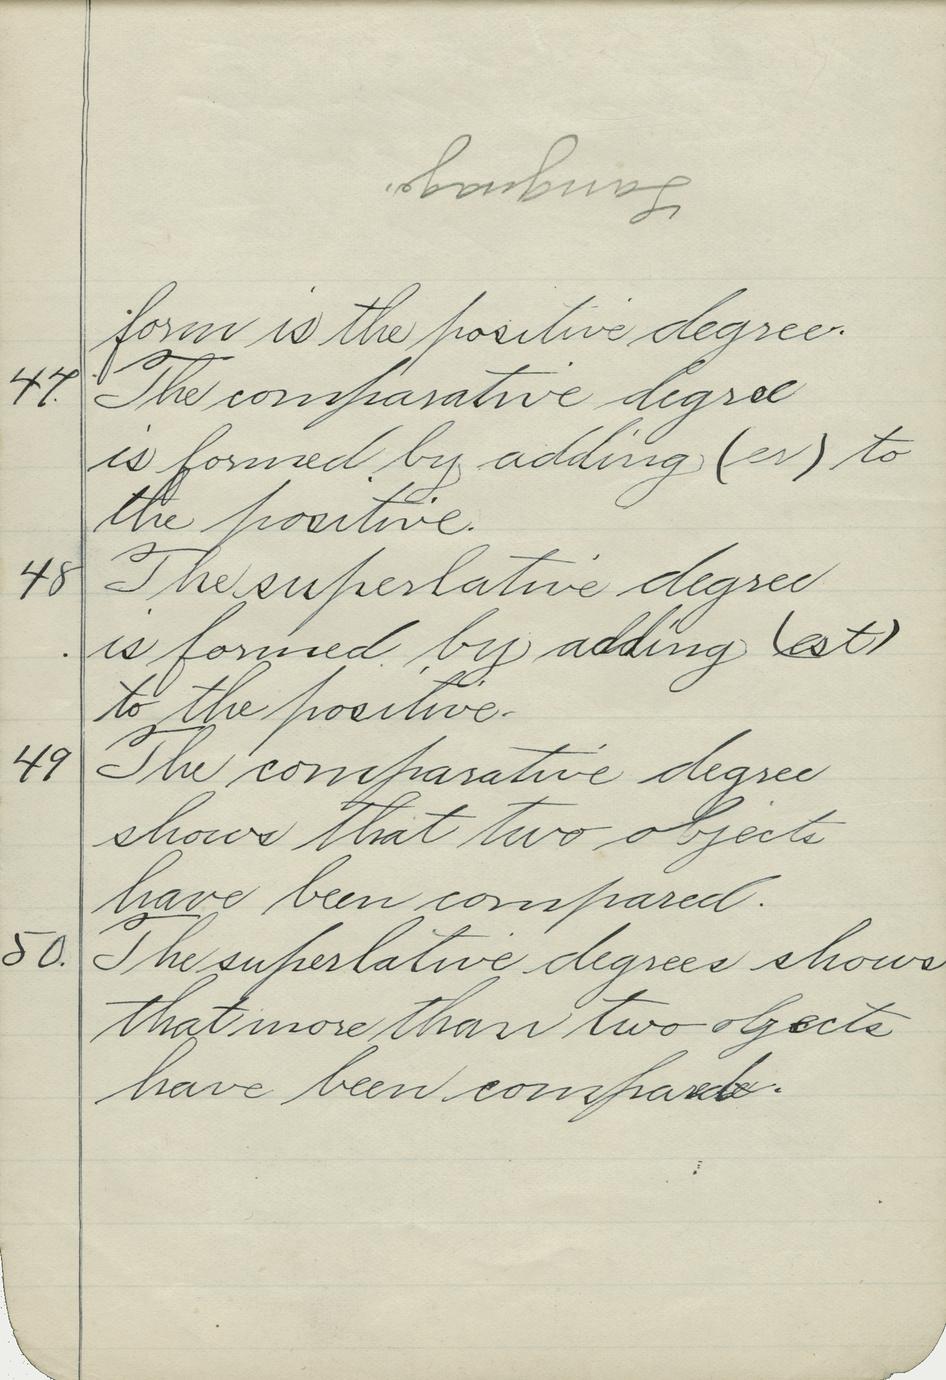 Language
form is the positive degree.
47. The comparative degree
is formed by adding (er) to
the positive.
48 The superlative degree
is formed by adding (est)
to the positive.
49 The comparative degree
shows that two objects
have been compared.
50. The superlative degrees shows
that more than two objects
have been compared.